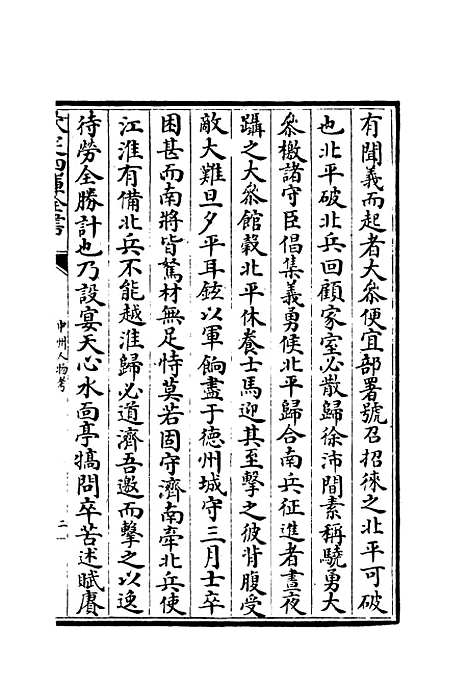 有聞義而起者大叅便宜部署號召招徠之北平可破
也北平破北兵回顧家室必散歸徐沛間素稱驍勇大
叅檄諸守臣倡集義勇俟北平歸合南兵征進者晝夜
躡之大叅館穀北平休養士馬迎其至擊之彼背腹受
敵大難旦夕平耳鉉以軍餉盡于徳州城守三月士卒
困甚而南將皆駑材無足恃莫若固守濟南牽北兵使
江淮有備北兵不能越淮歸必道濟吾邀而擊之以逸
待勞全勝計也乃設宴天心水面亭犒問卒苦述賦賡
欽定四庫全書
中州人物考